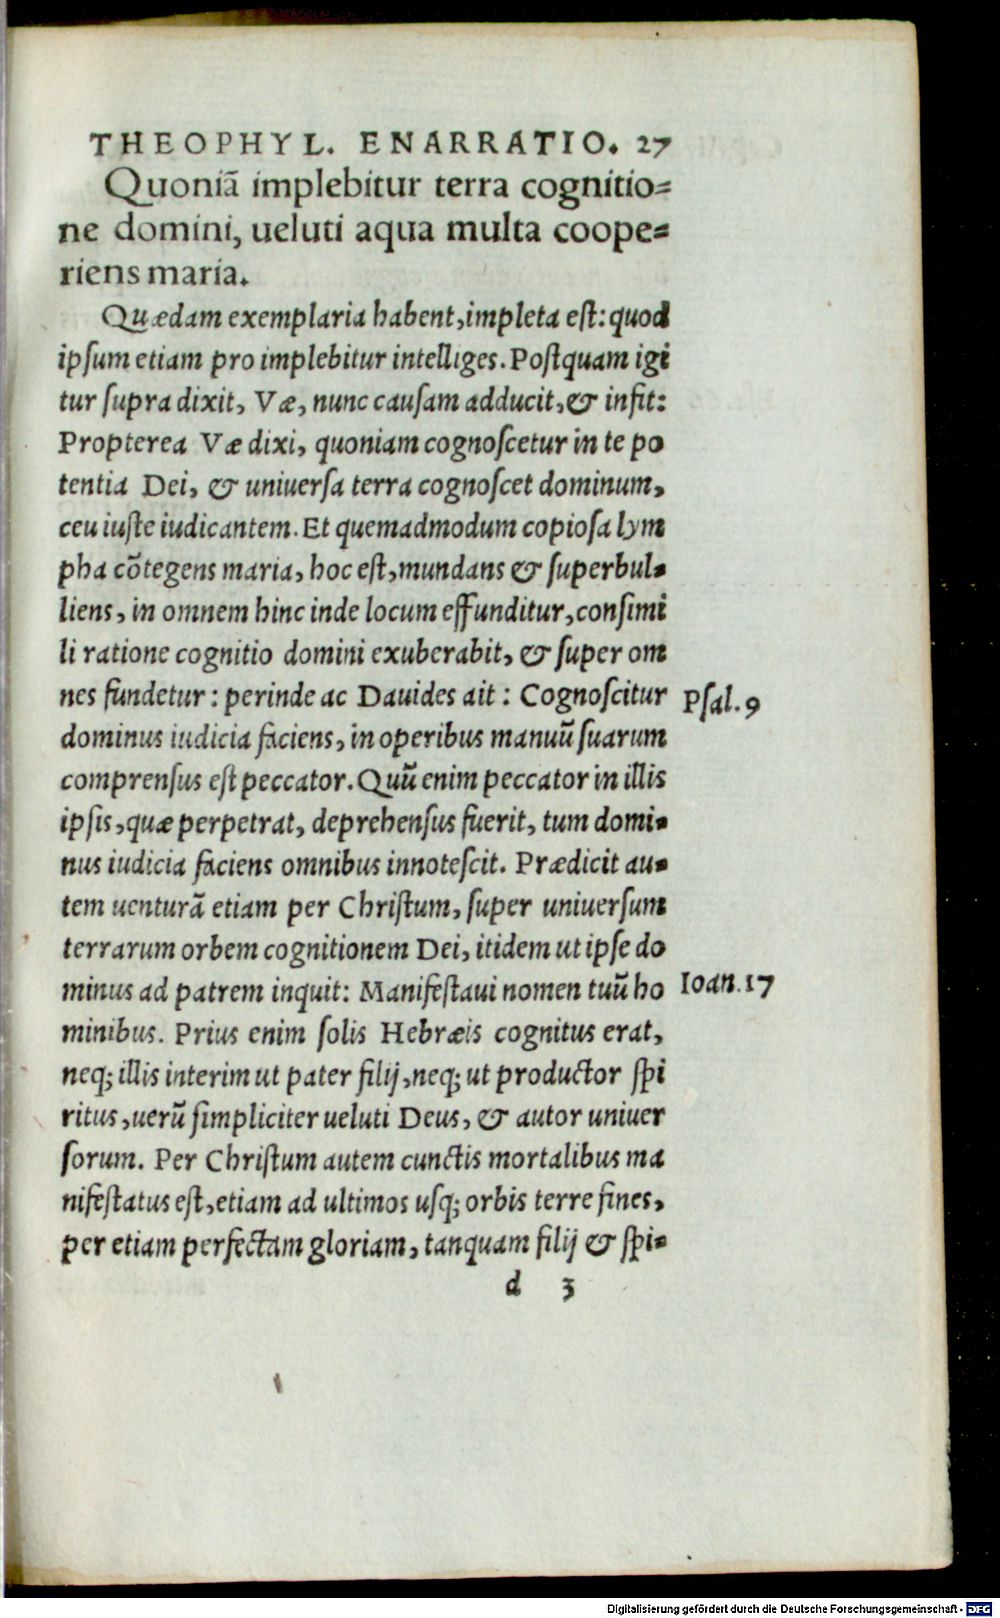 THEOPHYL. ENARRATIO. 27
Quoniã implebitur terra cognitio=
ne domini, ueluti aqua multa coope=
riens maria.
Quædam exemplaria habent, impleta est: quod
ipsum etiam pro implebitur intelliges. Postquam igi
tur supra dixit, Væ, nunc causam adducit, & infit:
Propterea Væ dixi, quoniam cognoscetur in te po
tentia Dei, & uniuersa terra cognoscet dominum,
ceu iuste iudicantem. Et quemadmodum copiosa lym
pha cõtegens maria, hoc est, mundans & superbul=
liens, in omnem hinc inde locum effunditur, consimi
li ratione cognitio domini exuberabit, & super om
nes fundetur: perinde ac Dauides ait: Cognoscitur
Psal. 9
dominus iudicia faciens, in operibus manuũ suarum
comprensus est peccator. Quũ enim peccator in illis
ipsis, quæ perpetrat, deprehensus fuerit, tum domi=
nus iudicia faciens omnibus innotescit. Prædicit au=
tem uenturã etiam per Christum, super uniuersum
terrarum orbem cognitionem Dei, itidem ut ipse do
minus ad patrem inquit: Manifestaui nomen tuũ ho
Ioan. 17
minibus. Prius enim solis Hebræis cognitus erat,
neq; illis interim ut pater filij, neq; ut productor spi
ritus, uerũ simpliciter ueluti Deus, & autor uniuer
sorum. Per Christum autem cunctis mortalibus ma
nifestatus est, etiam ad ultimos usq; orbis terre fines,
per etiam perfectam gloriam, tanquam filij & spi=
d 3
Digitalisierung gefördert durch die Deutsche Forschungsgemeinschaft - DFG